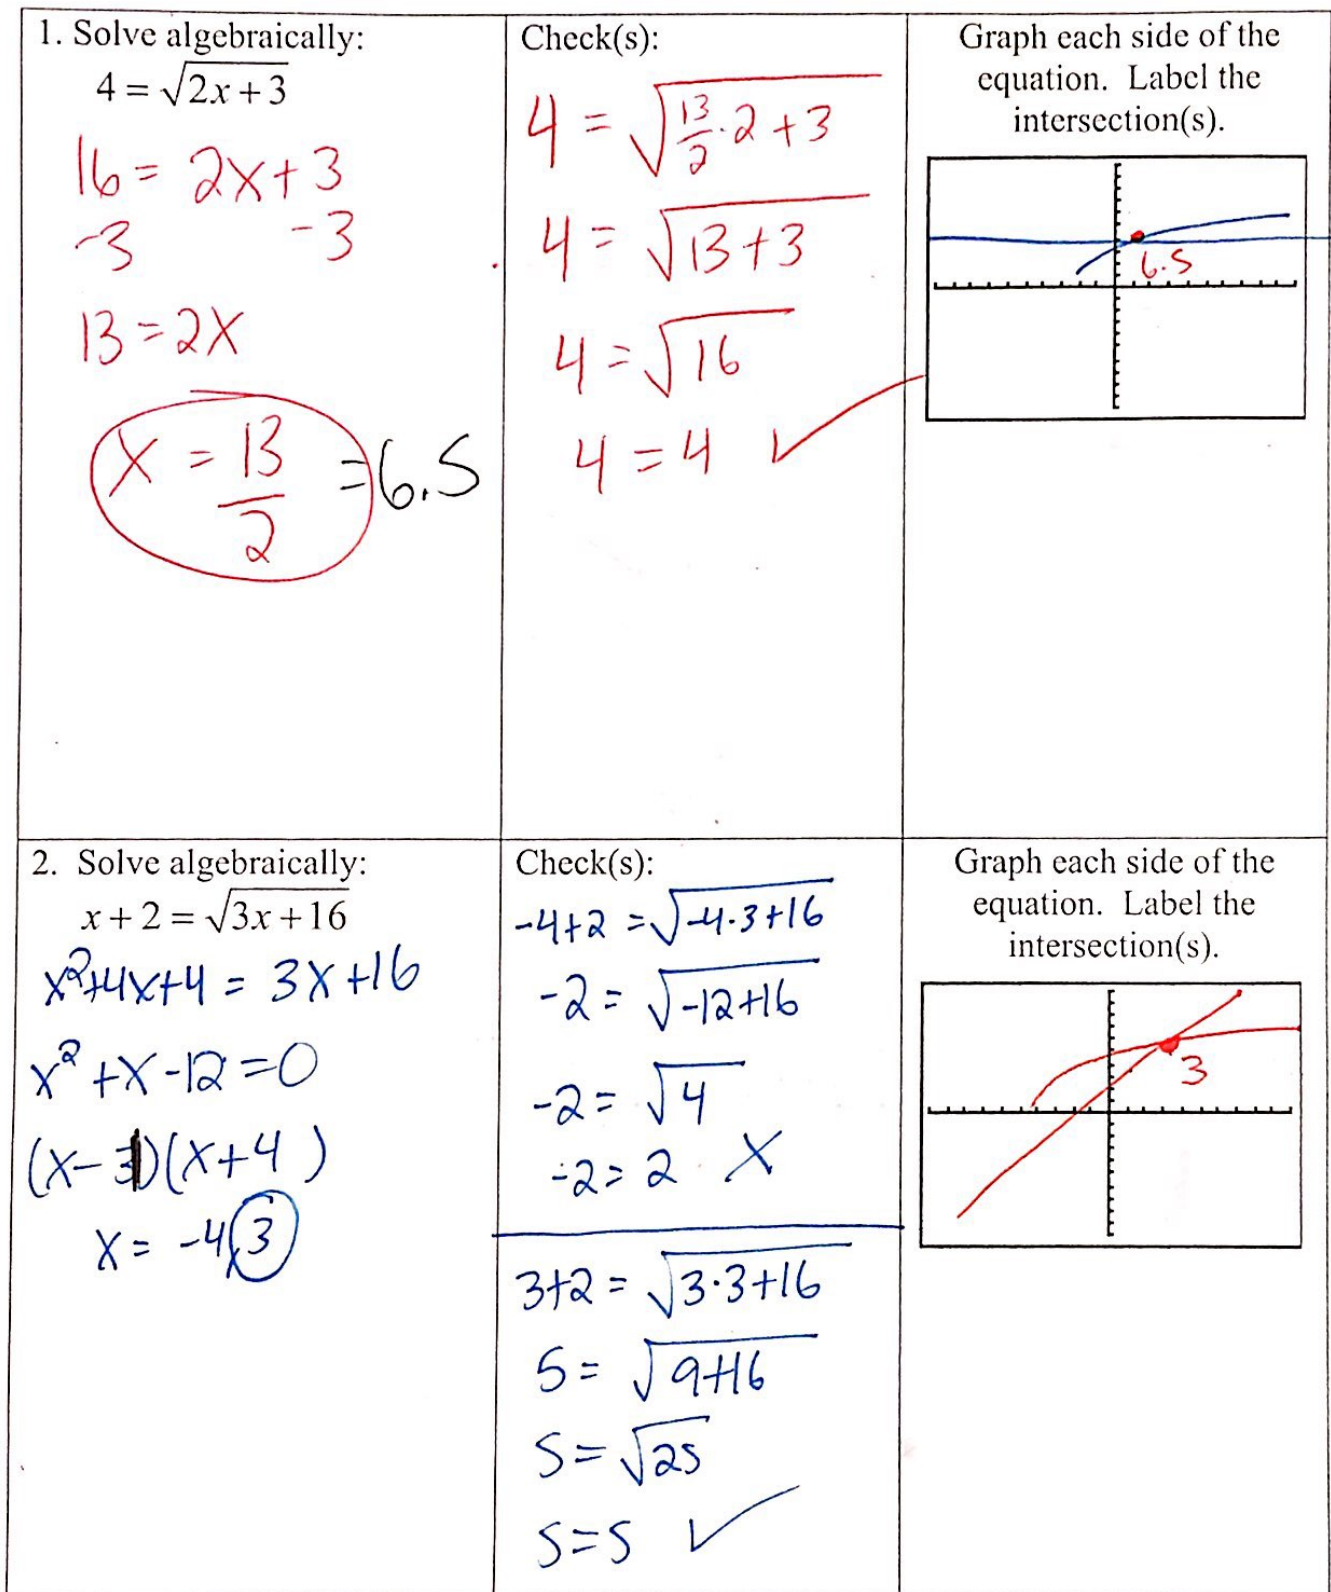 1. Solve algebraically:
4 = √(2x + 3)
16 = 2x + 3
-3 -3
13 = 2x
x = 13/2 = 6.5
Check(s):
4 = √(13/2 · 2 + 3)
4 = √(13 + 3)
4 = √16
4 = 4 ✓
Graph each side of the
equation. Label the
intersection(s).
6.5
2. Solve algebraically:
x + 2 = √(3x + 16)
x² + 4x + 4 = 3x + 16
x² + x - 12 = 0
(x - 3)(x + 4)
x = -4, 3
Check(s):
-4 + 2 = √(-4 · 3 + 16)
-2 = √(-12 + 16)
-2 = √4
-2 = 2 X
3 + 2 = √(3 · 3 + 16)
5 = √(9 + 16)
5 = √25
5 = 5 ✓
Graph each side of the
equation. Label the
intersection(s).
3